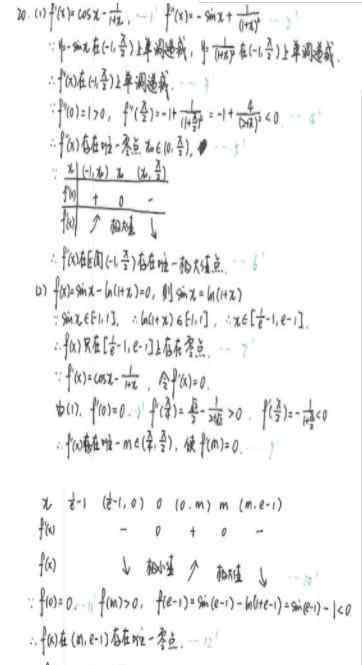 20. (1) f'(x)=cosx-1/(1+x), …1' f''(x)=-sinx+1/(1+x)² …2'
∵y=-sinx在(-1,π/2)上单调递减, y=1/(1+x)²在(-1,π/2)上单调递减.
∴f''(x)在(-1,π/2)上单调递减. …3'
∵f''(0)=1>0, f''(π/2)=-1+1/(1+π/2)²=-1+4/(2+π)²<0. …4'
∴f''(x)存在唯一零点x₀∈(0,π/2). …5'
x (-1,x₀) x₀ (x₀,π/2)
f''(x) + 0 -
f'(x) ↗ 极大值 ↓
∴f'(x)在区间(-1,π/2)存在唯一极大值点. …6'
(2) f(x)=sinx-ln(1+x)=0, 则sinx=ln(1+x)
∵sinx∈[-1,1]. ∴ln(1+x)∈[-1,1], ∴x∈[1/e-1,e-1].
∴f(x)只在[1/e-1,e-1]上存在零点. …7'
∵f'(x)=cosx-1/(1+x), 令f'(x)=0.
由(1), f'(0)=0. f'(π/4)=√2/2-1/(1+π/4)>0. f'(π/2)=-1/(1+π/2)<0
∴f'(x)存在唯一m∈(π/4,π/2), 使f'(m)=0. …9'
x 1/e-1 (1/e-1,0) 0 (0,m) m (m,e-1)
f'(x) - 0 + 0 -
f(x) ↓ 极小值 ↗ 极大值 ↓ …10'
∵f(0)=0, …11' f(m)>0, f(e-1)=sin(e-1)-ln(1+e-1)=sin(e-1)-1<0
∴f(x)在(m,e-1)存在唯一零点. …12'